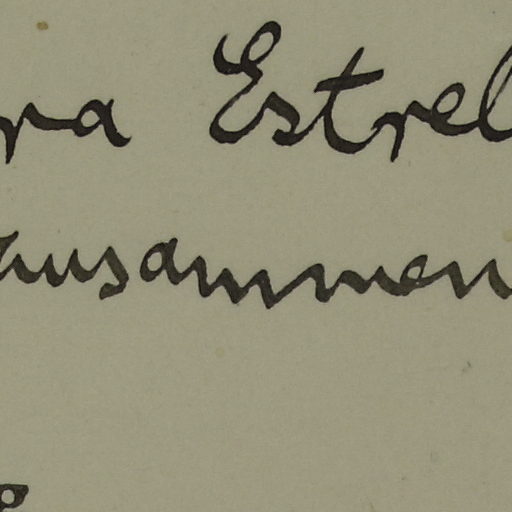 ra Estrel
ausammen